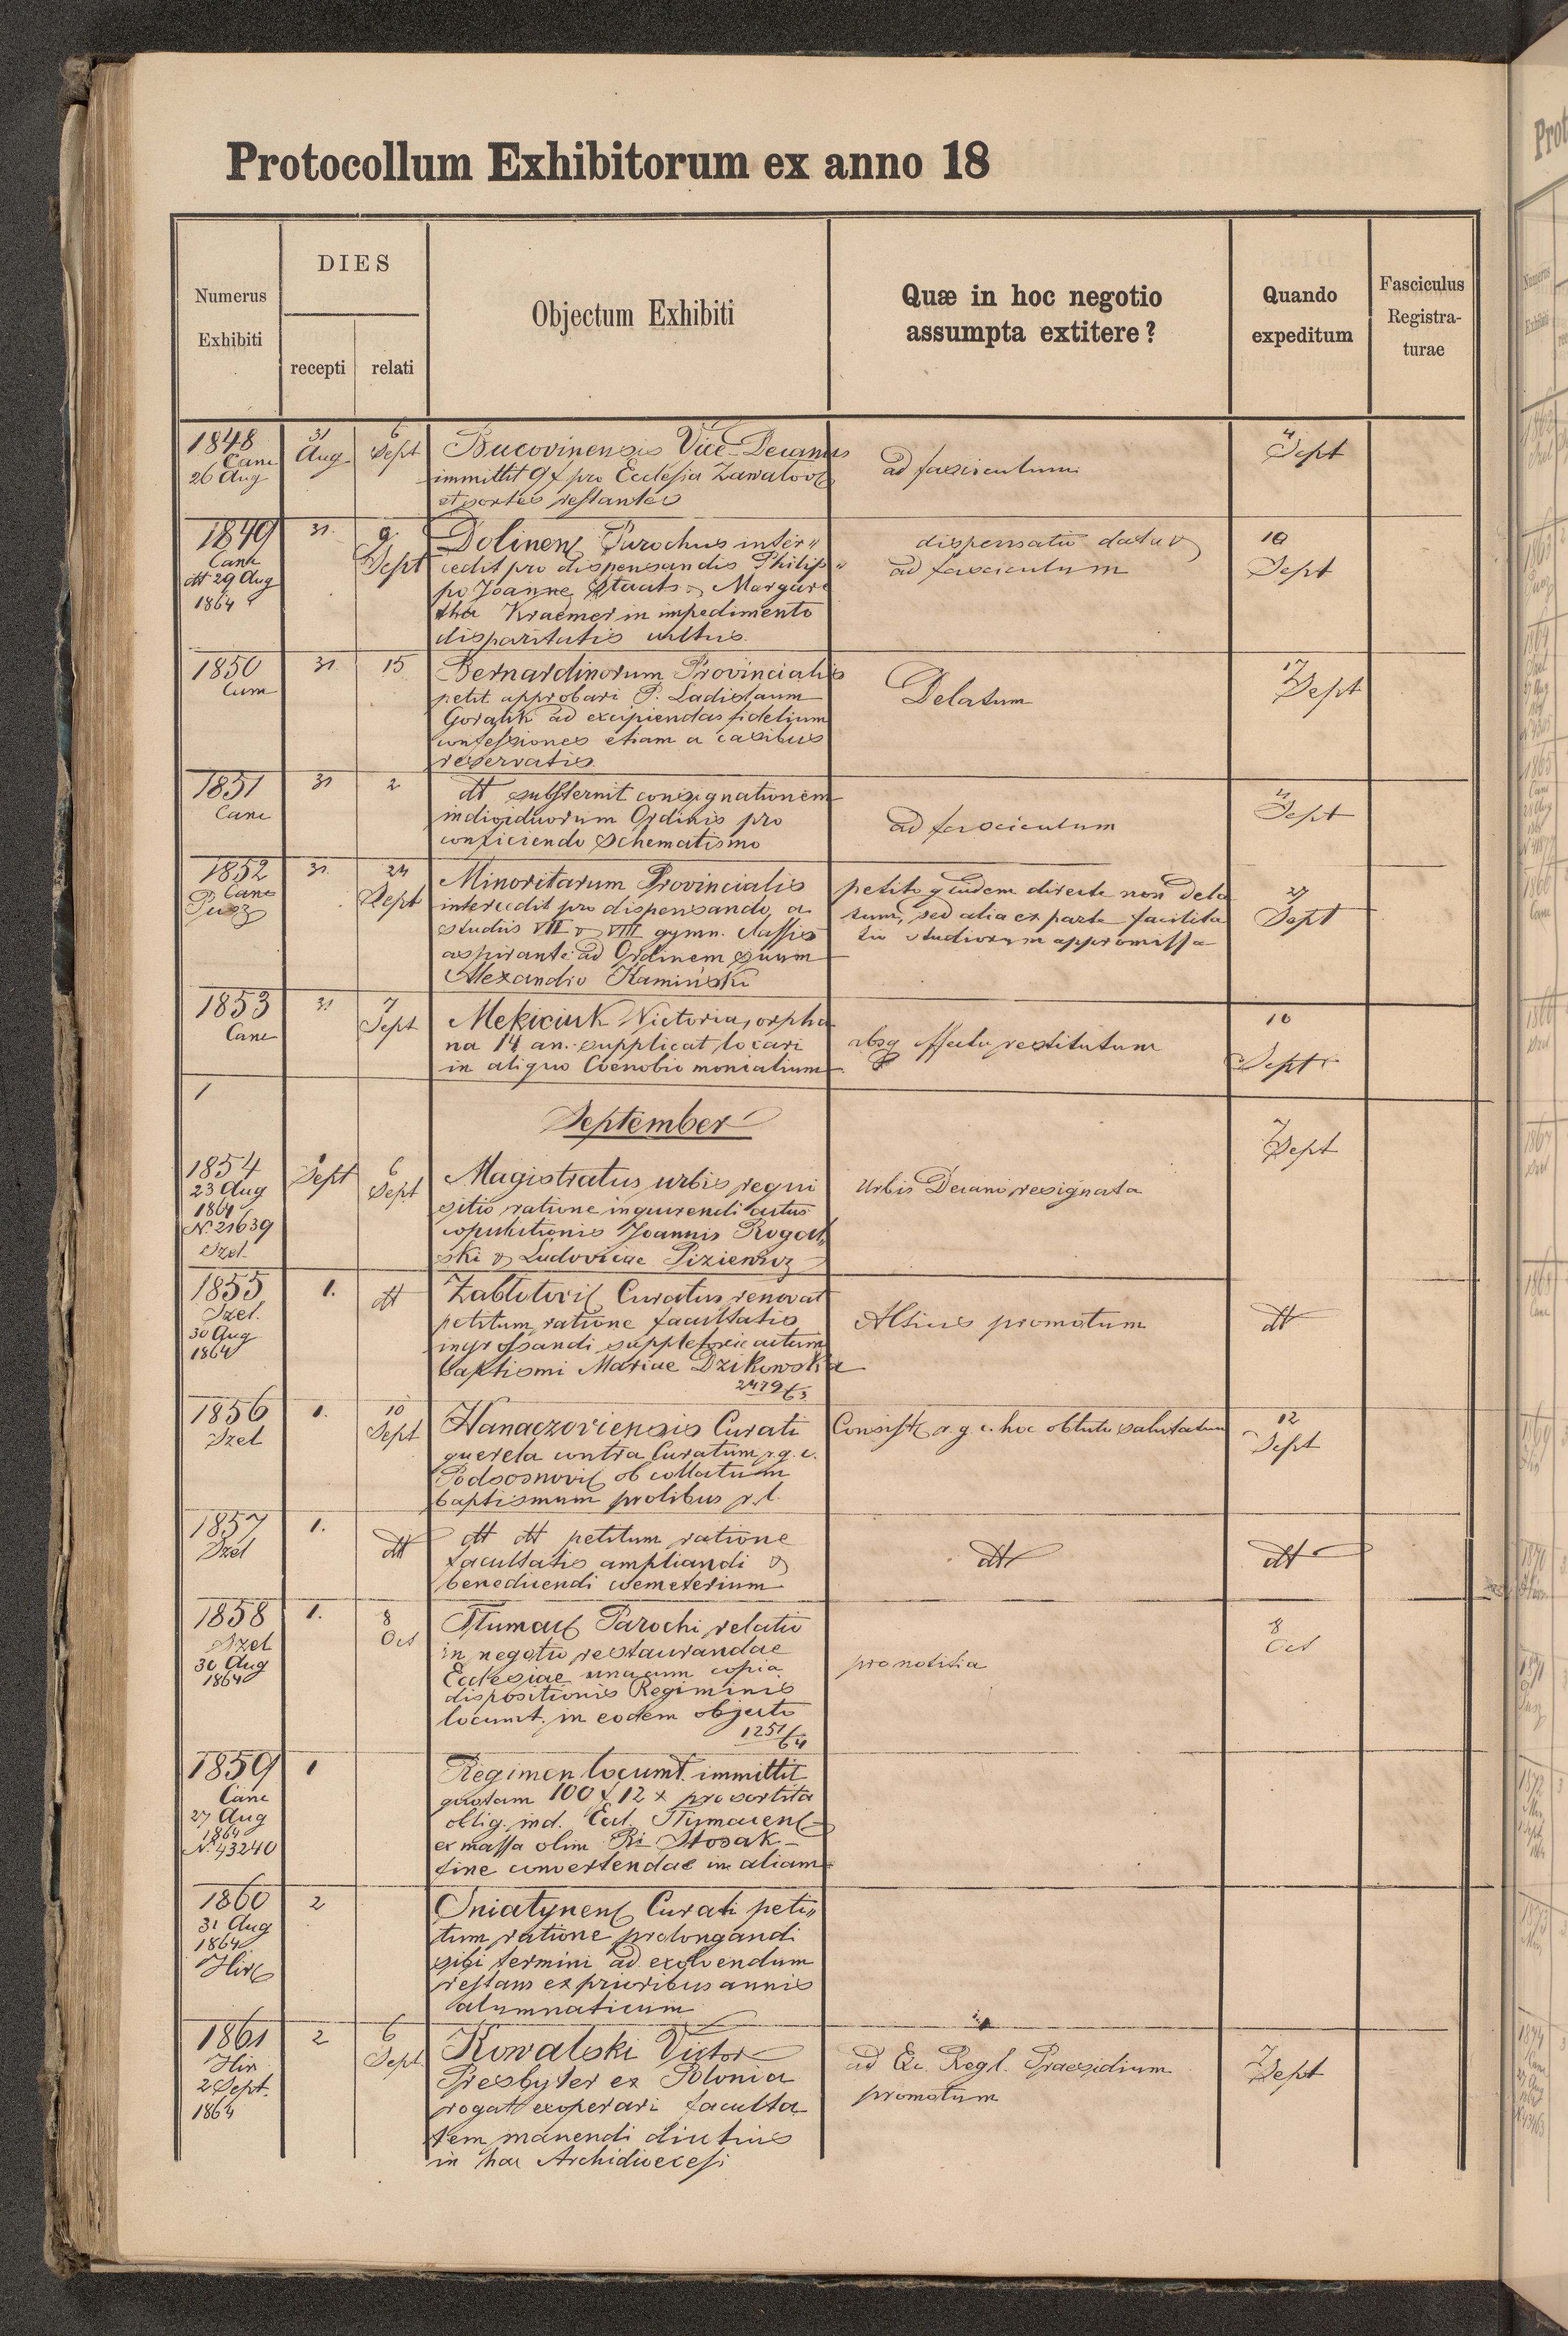 Protocollum Exhibitorum ex anno 18
Numerus
Exhibiti
DIES
recepti
relati
Objectum Exhibiti
Quæ in hoc negotio
assumpta extitere?
Quando
expeditum
Fasciculus
Registra-
turae
1848
Canc
26 Aug
31
Aug
6
Sept
Bucovinensis Vice-Decanus
immittit 9 f pro Ecclesia
et portes restantes
ad fasciculum
4
Sept
1849
Canc
dtt 29 Aug
1864
31.
9
Sept
Dolinens Parochus inter„
cedit pro dispensandis Philip„
po Joanne Staats & Margare
tha Kraemer in impedimento
disparitatis cultus.
dispensatio data &
ad fasciculum
10
Sept
1850
Cum
31
15
Bernardinorum Provincialis
petit approbari P. Ladislaum
Goralik ad excipiendas fidelium
confessiones etiam a casibus
reservatis
Delatum
17
Sept
1851
Canc
31
2
dtt substernit consignationem
individuorum Ordinis pro
conficiendo Schematismo
ad fasciculum
4
Sept
1852
Canc
31
24
Sept
Minoritarum Provincialis
intercedit pro dispensando a
studiis VII & VIII gymn. classis
aspirante ad Ordinem suum
Alexandro Kamiński
petito quidem directe non dela
tum, sed alia ex parte facilita
tio studiorum appromissa
27
Sept
1853
Canc
31
7
Sept
Mekiciuk Victoria, orpha
na 14 an. supplicat locari
in aliquo Coenobio monialium
absq effectu restitutum
10
Sept
1
September
7
Sept
1854
23 Aug
1864
N. 21639
Szel.
1
Sept
6
Sept
Magistratus urbis requi
sitio ratione inquirendi actus
copulationis Joannis Rogal„
ski & Ludovicae Pizievicz
Urbis Decano resignata
1855
Szel.
30 Aug
1864
1.
dtt
Zablotovis Curatus renovat
petitum ratione facultatis
ingrossandi suppletorie actum
baptismi Mariae Dzikowska
2479/63
Altius promotum
dtt
1856
Szel
1.
10
Sept
Hanaczoviensis Curati
querela contra Curatum r. g. c.
Podsosnovis ob collatum
baptismum prolibus r. l.
Consist r. g. c. hoc obtutu salutatum
12
Sept
1857
Szel
1.
dtt
dtt dtt petitum ratione
facultatis ampliandi &
benedicendi coemeterium
dtt
dtt
1858
Szel
30 Aug
1864
1.
8
Oct
Tlumacs Parochi relatio
in negotio restaurandae
Ecclesiae unacum copia
dispositionis Regiminis
locumt. in eodem objecto
1251/64
pro notitia
8
Oct
1859
Canc
27 Aug
1864
N. 43240
1
Regimen locumt. immittit
quotam 100 f 12 x pro sortita
oblig. ind. Eccl. Tlumacens
ex massa olim Ri Stosak
fine convertendae in aliam
1860
31 Aug
1864
Hir
2
Sniatynens Curati peti„
tum ratione prolongandi
sibi termini ad exolvendum
restans ex prioribus annis
alumnaticum
1861
Hir
2 Sept.
1864
2
6
Sept
Kowalski Victor
Presbyter ex Polonia
rogat exoperari faculta
tem manendi diutius
in hac Archidiocesi
ad Ex. Regl. Praesidium
promotum
7
Sept